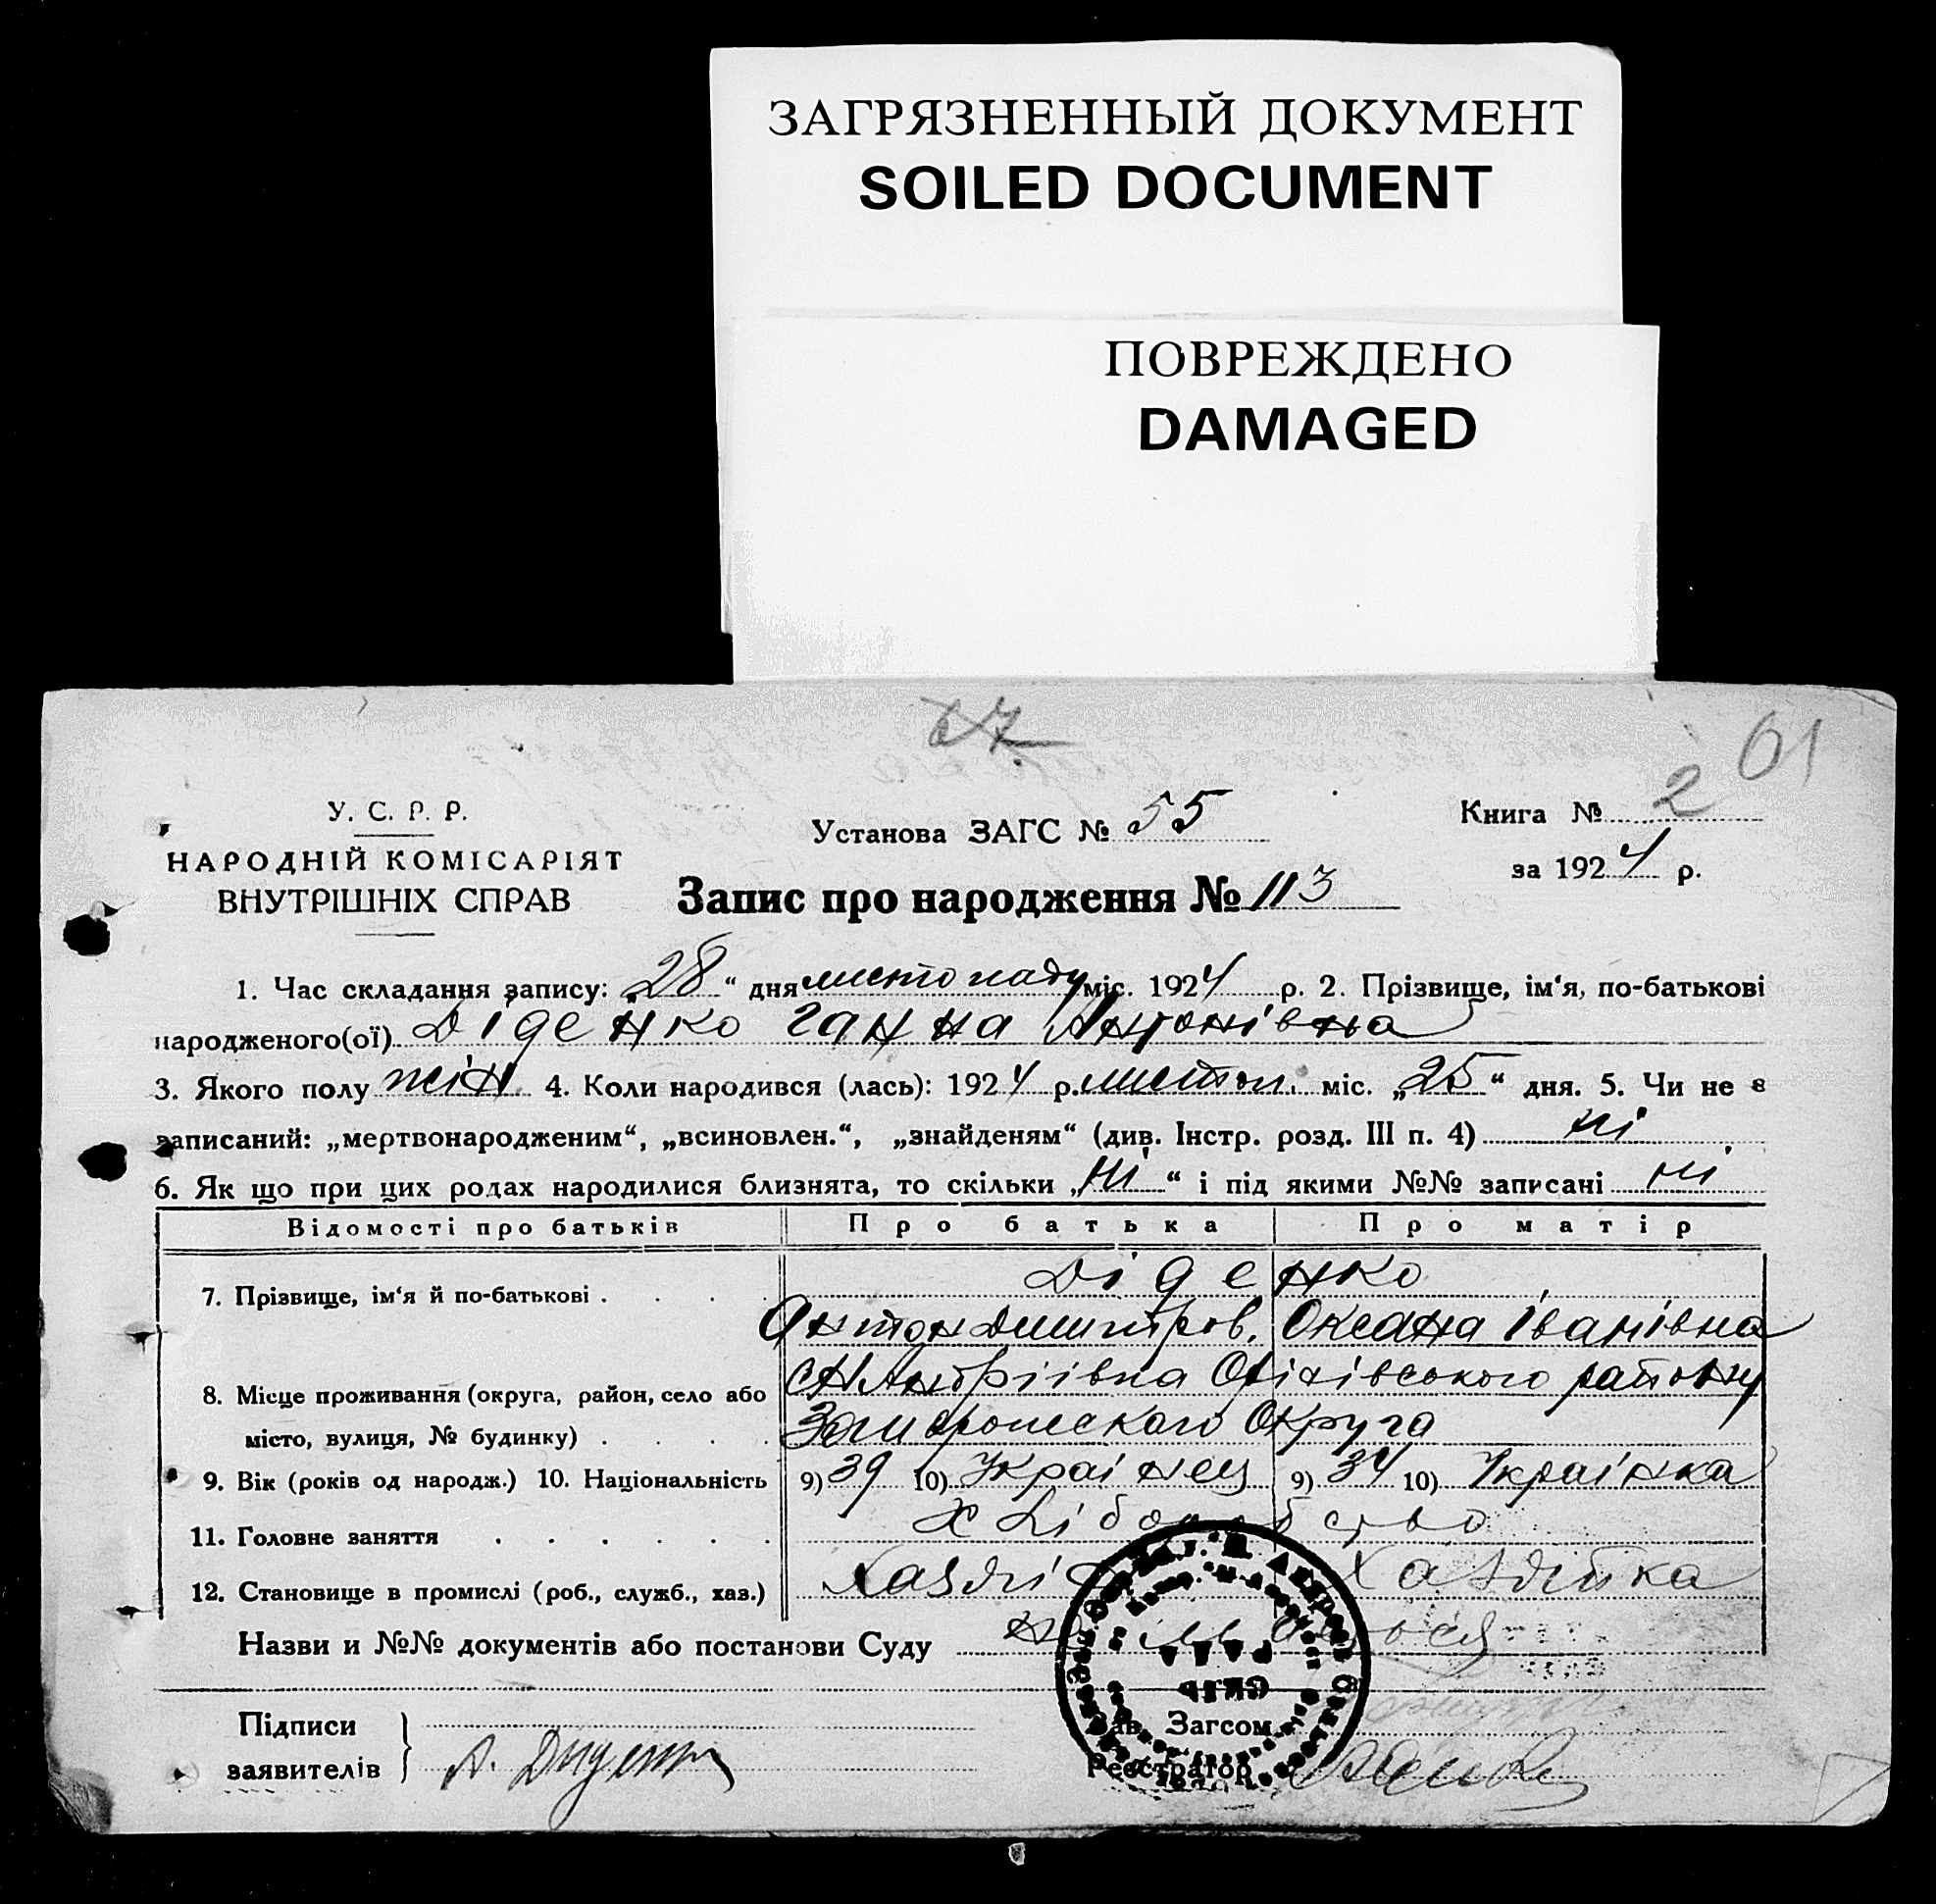 ЗАГРЯЗНЕННЫЙ ДОКУМЕНТ
SOILED DOCUMENT
ПОВРЕЖДЕНО
DAMAGED
67
61
У. С. Р. Р.
НАРОДНІЙ КОМІСАРІЯТ
ВНУТРІШНІХ СПРАВ
Установа ЗАГС № 55
Запис про народження № 113
Книга № 2
за 1924 р.
1. Час складання запису: „28“ дня листопаду міс. 1924 р. 2. Прізвище, ім‘я, по-батькові
народженого(ої) Діденко Ганна Антонівна
3. Якого полу жін. 4. Коли народився (лась): 1924 р. листоп. міс. „25“ дня. 5. Чи не є
записаний: „мертвонародженим“, „всиновлен.“, „знайденям“ (див. Інстр. розд. III п. 4) ні
6. Як що при цих родах народилися близнята, то скільки „ні“ і під якими №№ записані ні
Відомості про батьків Про батька Про матір
7. Прізвище, ім‘я й по-батькові . . . . Діденко
Антон Дмитров. Оксана Іванівна
8. Місце проживання (округа, район, село або с Андріївка Оріхівського району
місто, вулиця, № будинку) . . . . Запорожскаго Округа
9. Вік (років од народж.) 10. Національність 9) 39 10) Українец 9) 34 10) Українка
11. Головне заняття . . . . . . Хліборобство
12. Становище в промислі (роб., служб., хаз.) Хазяїн Хазяйка
Назви и №№ документів або постанови Суду
Підписи
заявителів А. Диденко
Зав. Загсом
Реєстратор